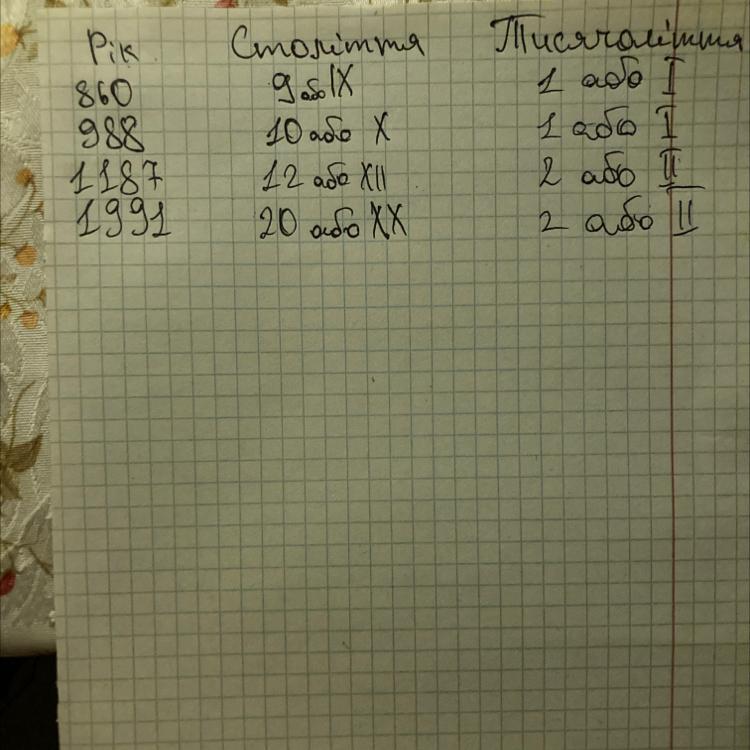 Рік Століття Тисячоліття
860 9 або IX 1 або I
988 10 або X 1 або I
1187 12 або XII 2 або II
1991 20 або XX 2 або II